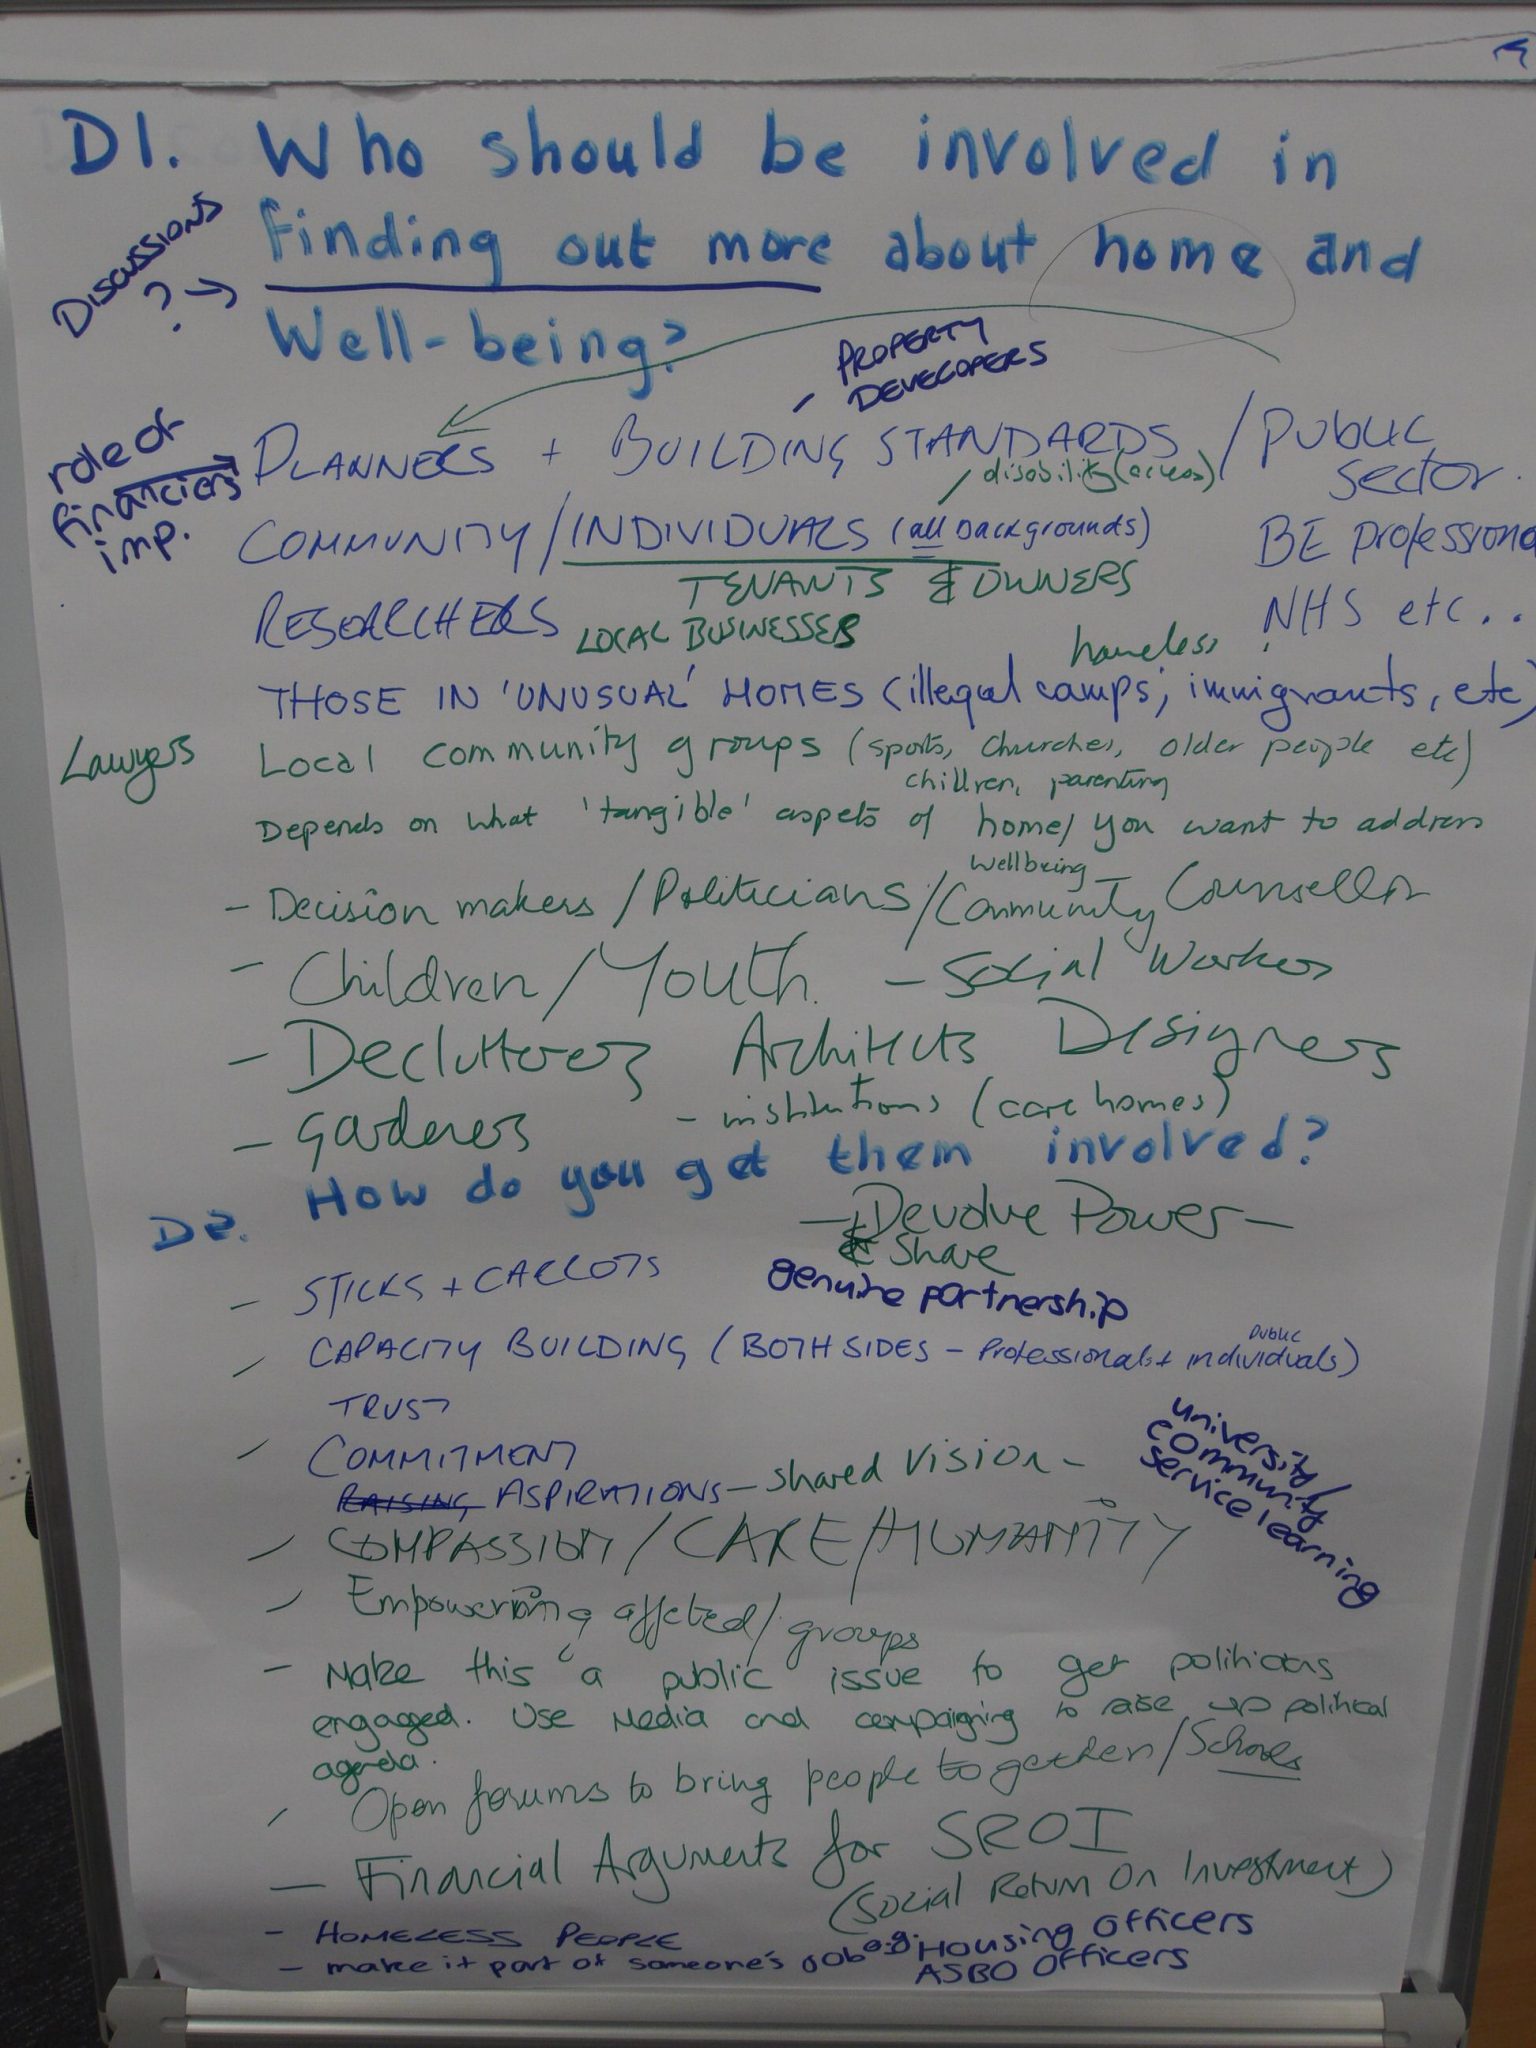 D1. Who should be involved in
Discussions
? →
finding out more about home and
Well-being?
- PROPERTY
DEVELOPERS
role of
financiers
imp.
PLANNERS + BUILDING STANDARDS / PUBLIC
sector.
disability (access)
COMMUNITY / INDIVIDUALS (all backgrounds)
BE professiona
TENANTS & OWNERS
RESEARCHERS
LOCAL BUSINESSES
NHS etc..
homeless
THOSE IN 'UNUSUAL' HOMES (illegal camps, immigrants, etc)
Lawyers
Local community groups (sports, churches, older people etc)
children, parenting
Depends on what 'tangible' aspets of home/ you want to address
wellbeing
- Decision makers / Politicians / Community Counsellor
- Children / Youth. - Social Workers
- Declutterers Architects Designers
- Gardeners - institutions (care homes)
D2. How do you get them involved?
- Devolve Power -
& Share
genuine partnership
- STICKS + CARROTS
- CAPACITY BUILDING (BOTH SIDES - Professionals + individuals)
public
TRUST
- COMMITMENT
university/
community
service learning
RAISING ASPIRATIONS - shared vision -
- COMPASSION / CARE / HUMANITY
- Empowering affected / groups
- Make this a public issue to get politicians
engaged. Use Media and campaigning to raise up political
agenda.
- Open forums to bring people together / Schools
- Financial Arguments for SROI
(Social Return On Investment)
- HOMELESS PEOPLE
- make it part of someone's job e.g. Housing Officers
ASBO Officers